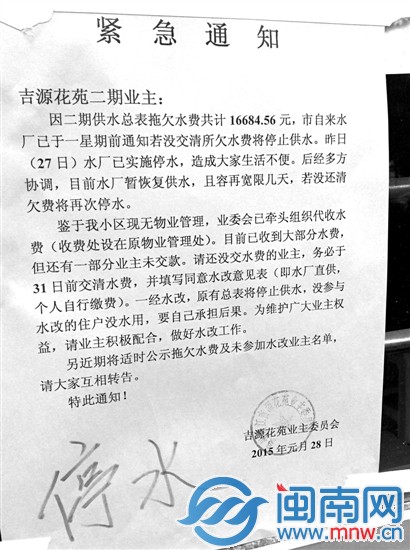 紧急通知
吉源花苑二期业主：
因二期供水总表拖欠水费共计 16684.56 元，市自来水
厂已于一星期前通知若没交清所欠水费将停止供水。昨日
（27 日）水厂已实施停水，造成大家生活不便。后经多方
协调，目前水厂暂恢复供水，且容再宽限几天，若没还清
欠费将再次停水。
鉴于我小区现无物业管理，业委会已牵头组织代收水
费（收费处设在原物业管理处）。目前已收到大部分水费，
但还有一部分业主未交款。请还没交水费的业主，务必于
31 日前交清水费，并填写同意水改意见表（即水厂直供，
个人自行缴费）。一经水改，原有总表将停止供水，没参与
水改的住户没水用，要自己承担后果。为维护广大业主权
益，请业主积极配合，做好水改工作。
另近期将适时公示拖欠水费及未参加水改业主名单，
请大家互相转告。
特此通知！
吉源花苑业主委员会
2015 年元月 28 日
停水
闽南网
www.mnw.cn